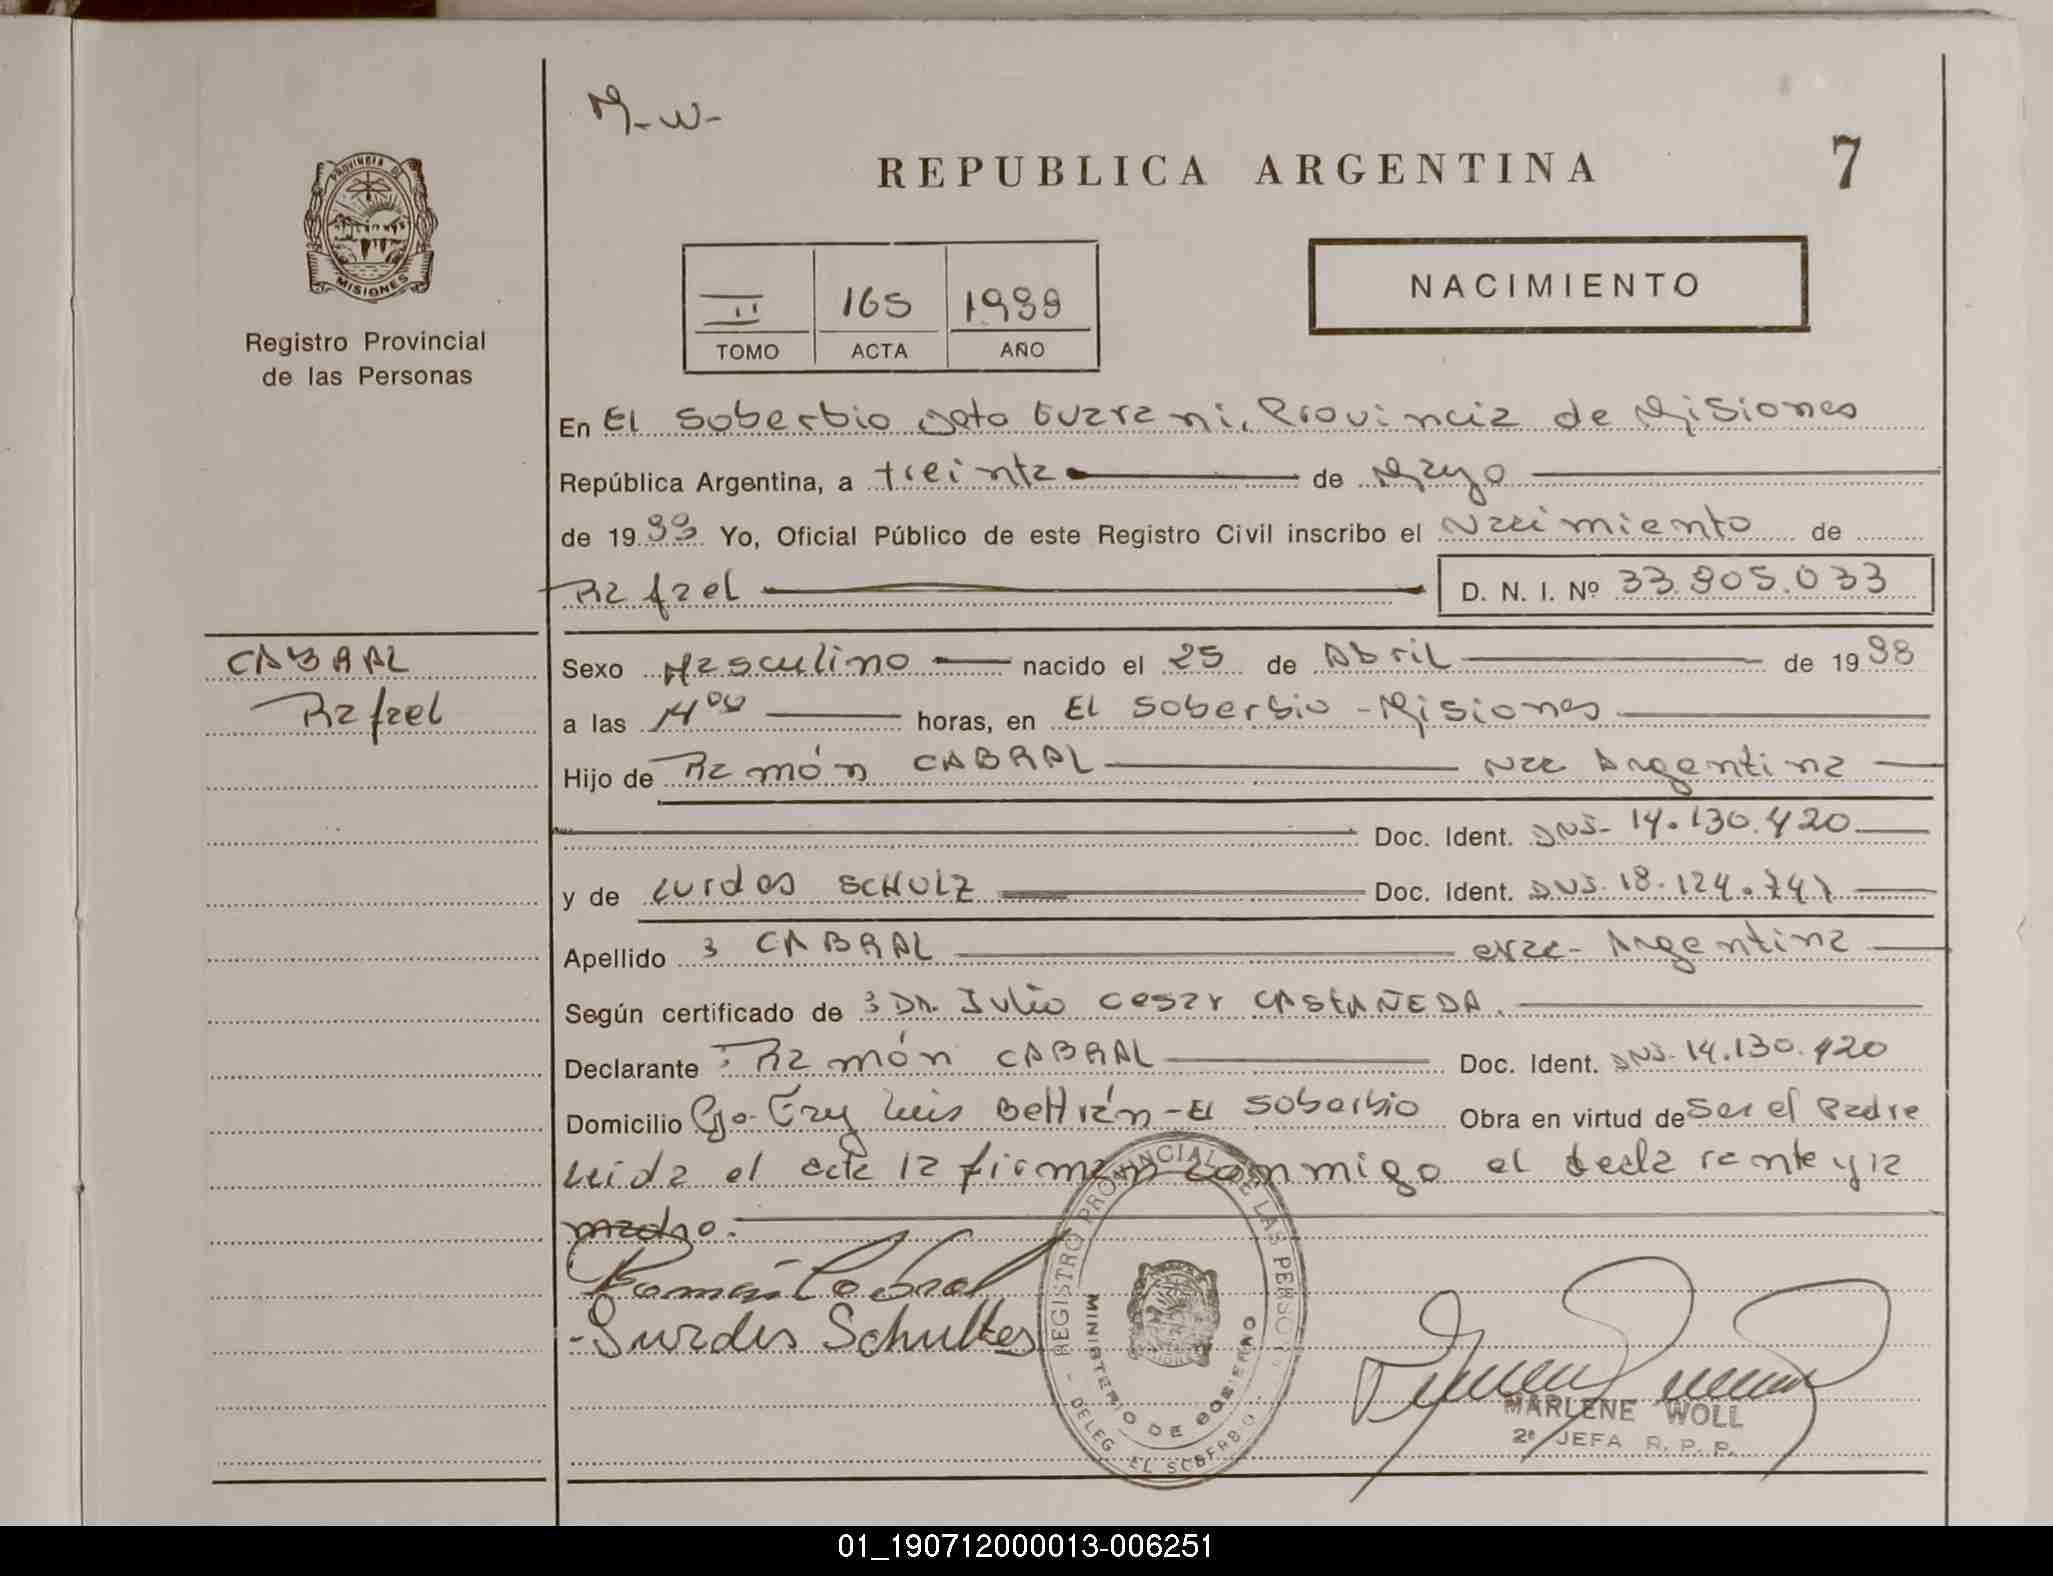 M-W-
REPUBLICA ARGENTINA
7
PROVINCIA DE
MISIONES
Registro Provincial
de las Personas
II 165 1989
TOMO ACTA AÑO
NACIMIENTO
En El Soberbio Dpto Guarani, Provincia de Misiones
República Argentina, a treinta de Mayo
de 1989 Yo, Oficial Público de este Registro Civil inscribo el Nacimiento de
Rafael D. N. I. Nº 33.905.033
CABRAL
Rafael
Sexo Masculino nacido el 25 de Abril de 1988
a las 14⁰⁰ horas, en El Soberbio - Misiones
Hijo de Ramón CABRAL Nac Argentina
Doc. Ident. DNI- 14.130.420
y de Lurdes SCHULZ Doc. Ident. DNI. 18.124.747
Apellido : CABRAL Argentina
Según certificado de : DR. Julio Cesar CASTAÑEDA.
Declarante : Ramón CABRAL Doc. Ident. DNI. 14.130.420
Domicilio Pje. Fray Luis Beltrán - El Soberbio Obra en virtud de Ser el Padre
Leida el acta la firman conmigo el declarante y la
madre.
Ramón Cabral
- Lurdes Schultes
REGISTRO PROVINCIAL DE LAS PERSO
MINISTERIO DE GOBIERNO
- DELEG. EL SOBERBIO -
MARLENE WOLL
2º JEFA R. P. P.
01_190712000013-006251